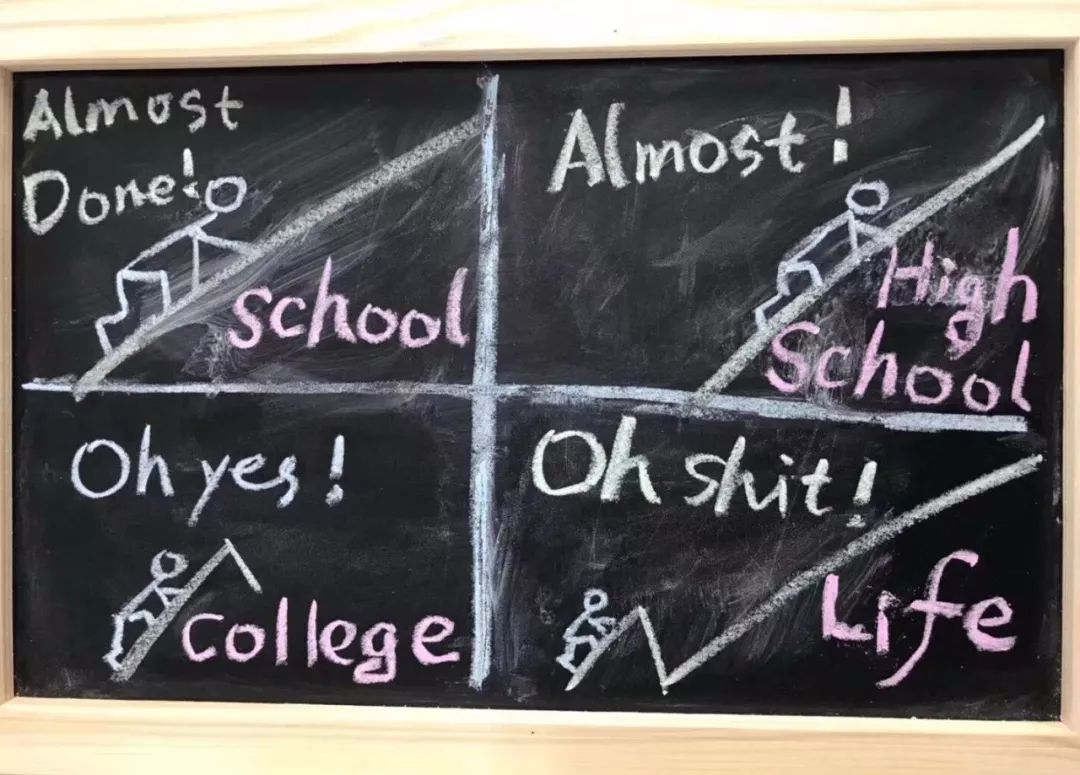 Almost
Done!
school
Almost!
High
School
Oh yes!
college
Oh shit!
Life